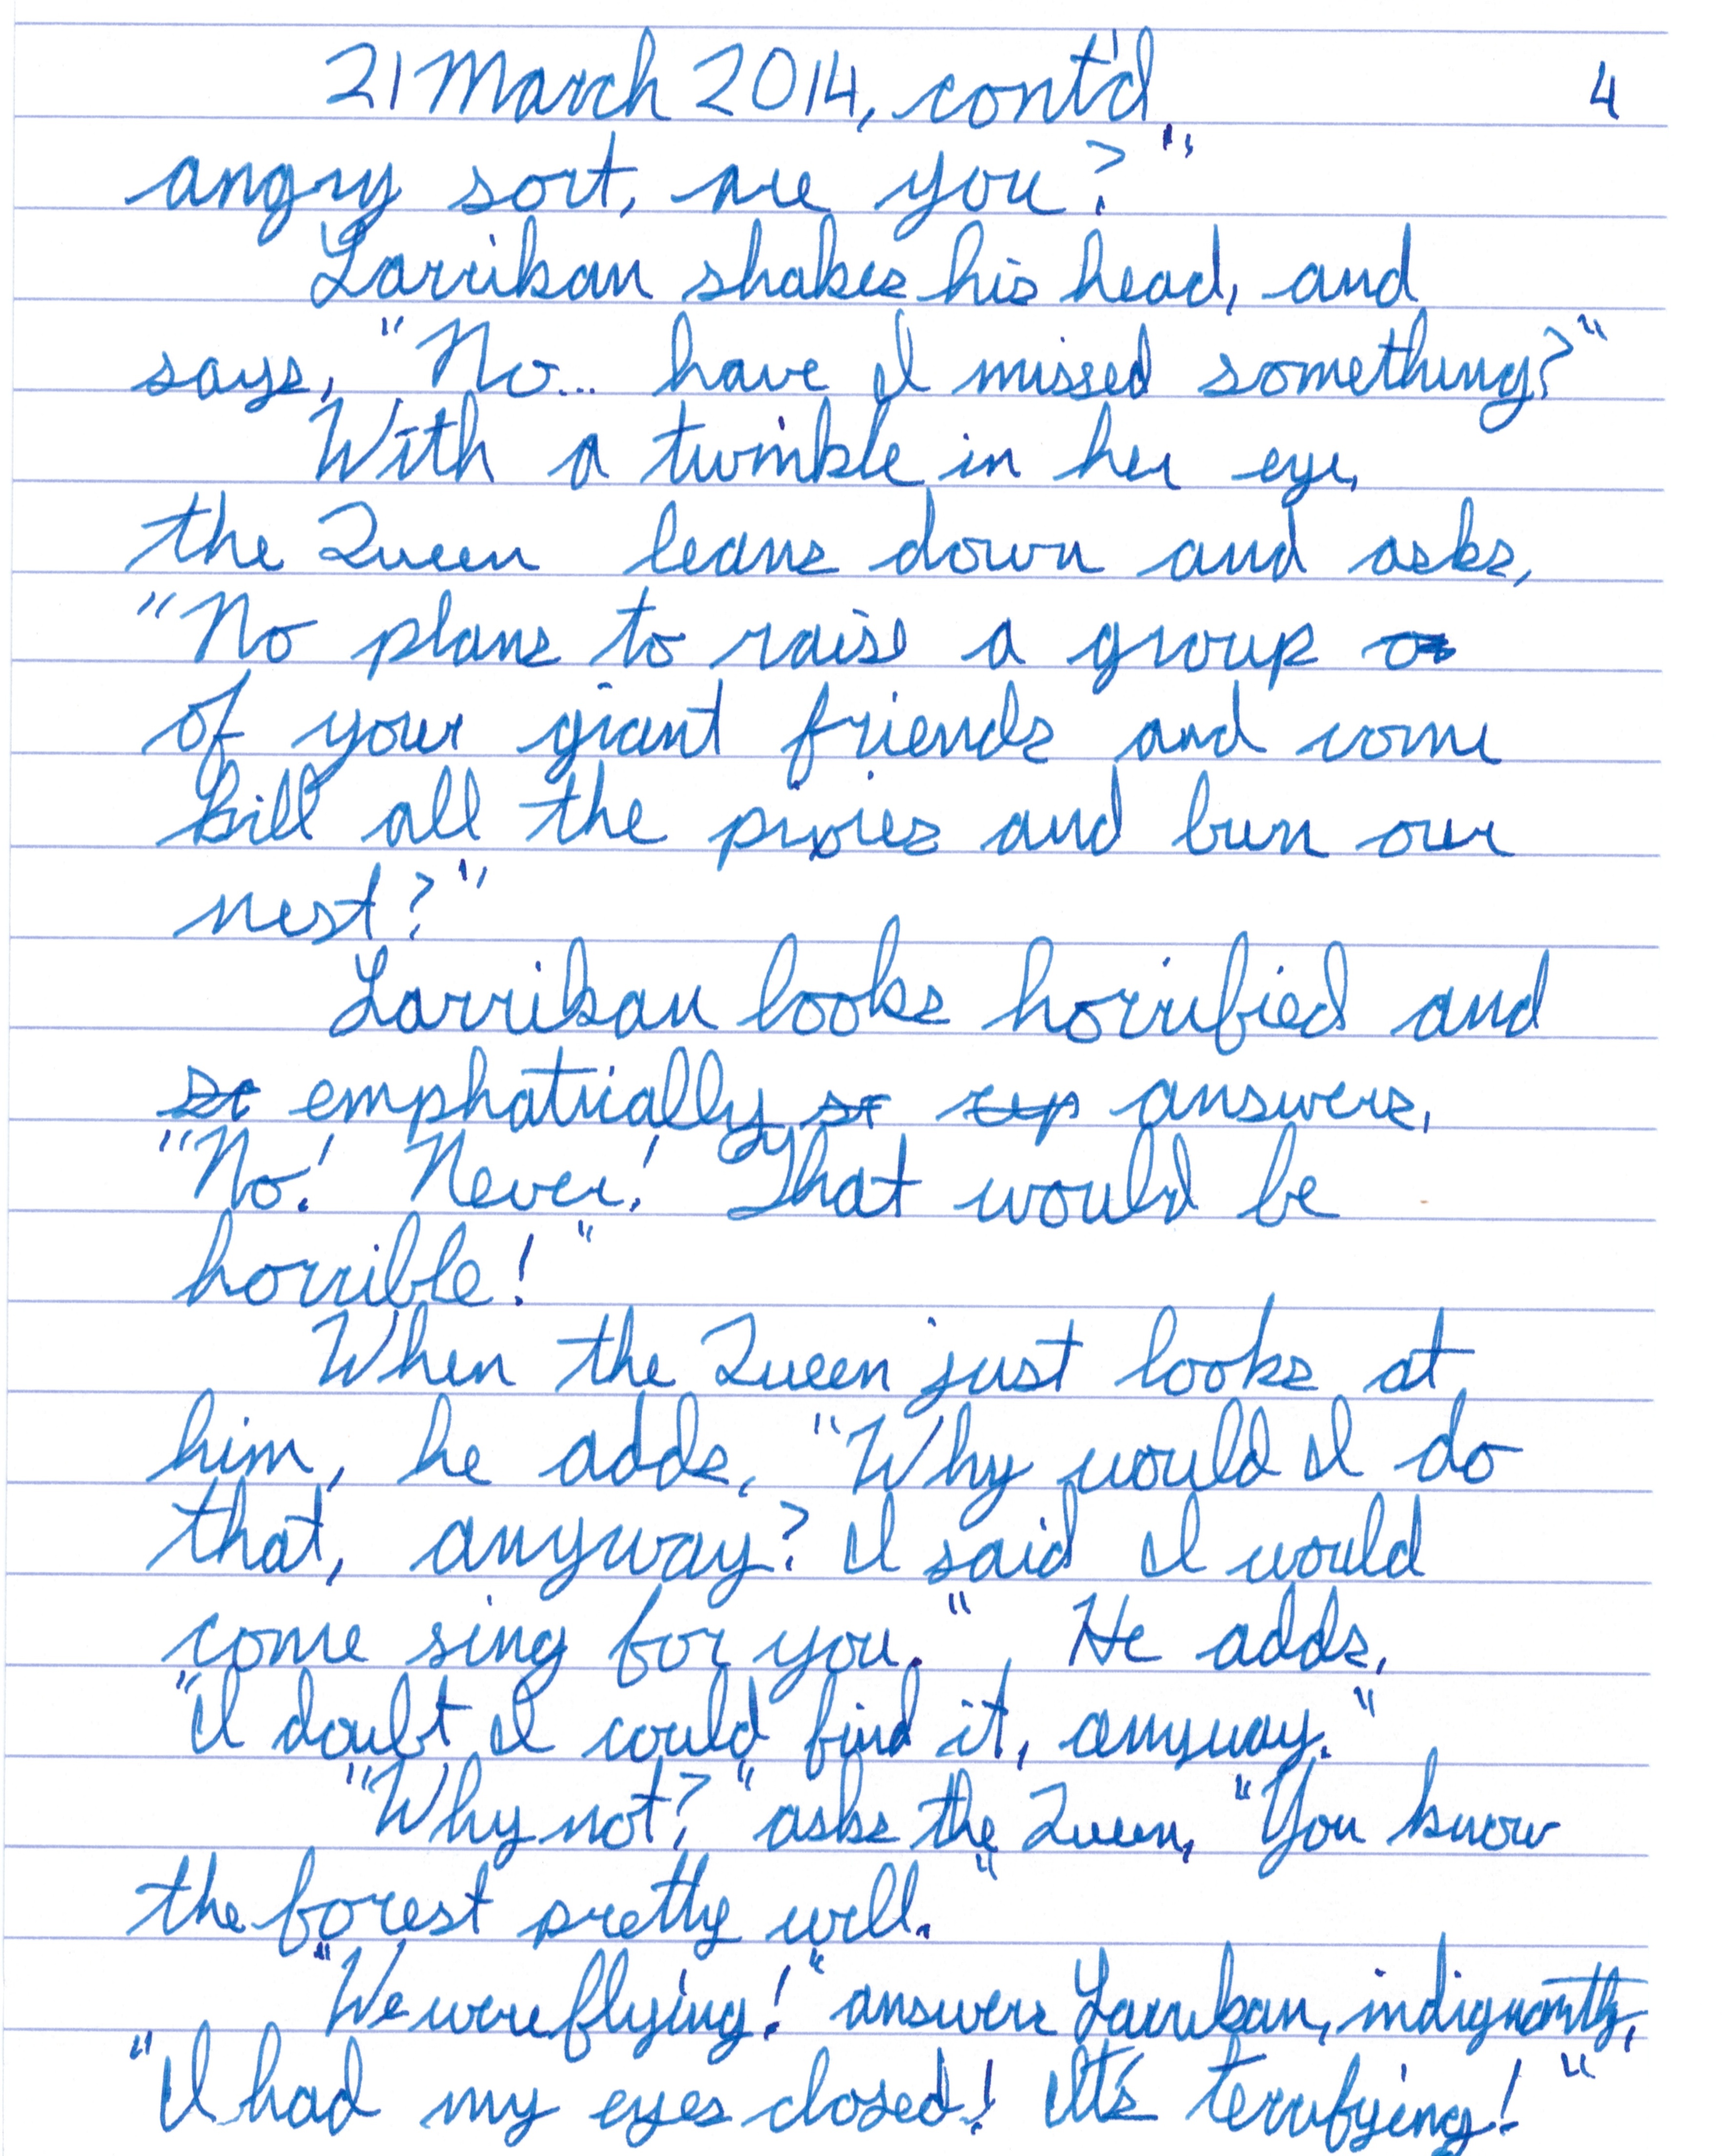 21 March 2014, cont'd. 4
angry sort, are you?"
Larrikan shakes his head, and
says, "No... have I missed something?"
With a twinkle in her eye,
the Queen leans down and asks,
"No plans to raise a group
of your giant friends and come
kill all the pixies and burn our
nest?"
Larrikan looks horrified and
emphatically answers,
"No! Never! That would be
horrible!"
When the Queen just looks at
him, he adds, "Why would I do
that, anyway? I said I would
come sing for you." He adds,
"I doubt I could find it, anyway."
"Why not?" asks the Queen, "You know
the forest pretty well."
"We were flying!" answers Larrikan, indignantly,
"I had my eyes closed! It's terrifying!"